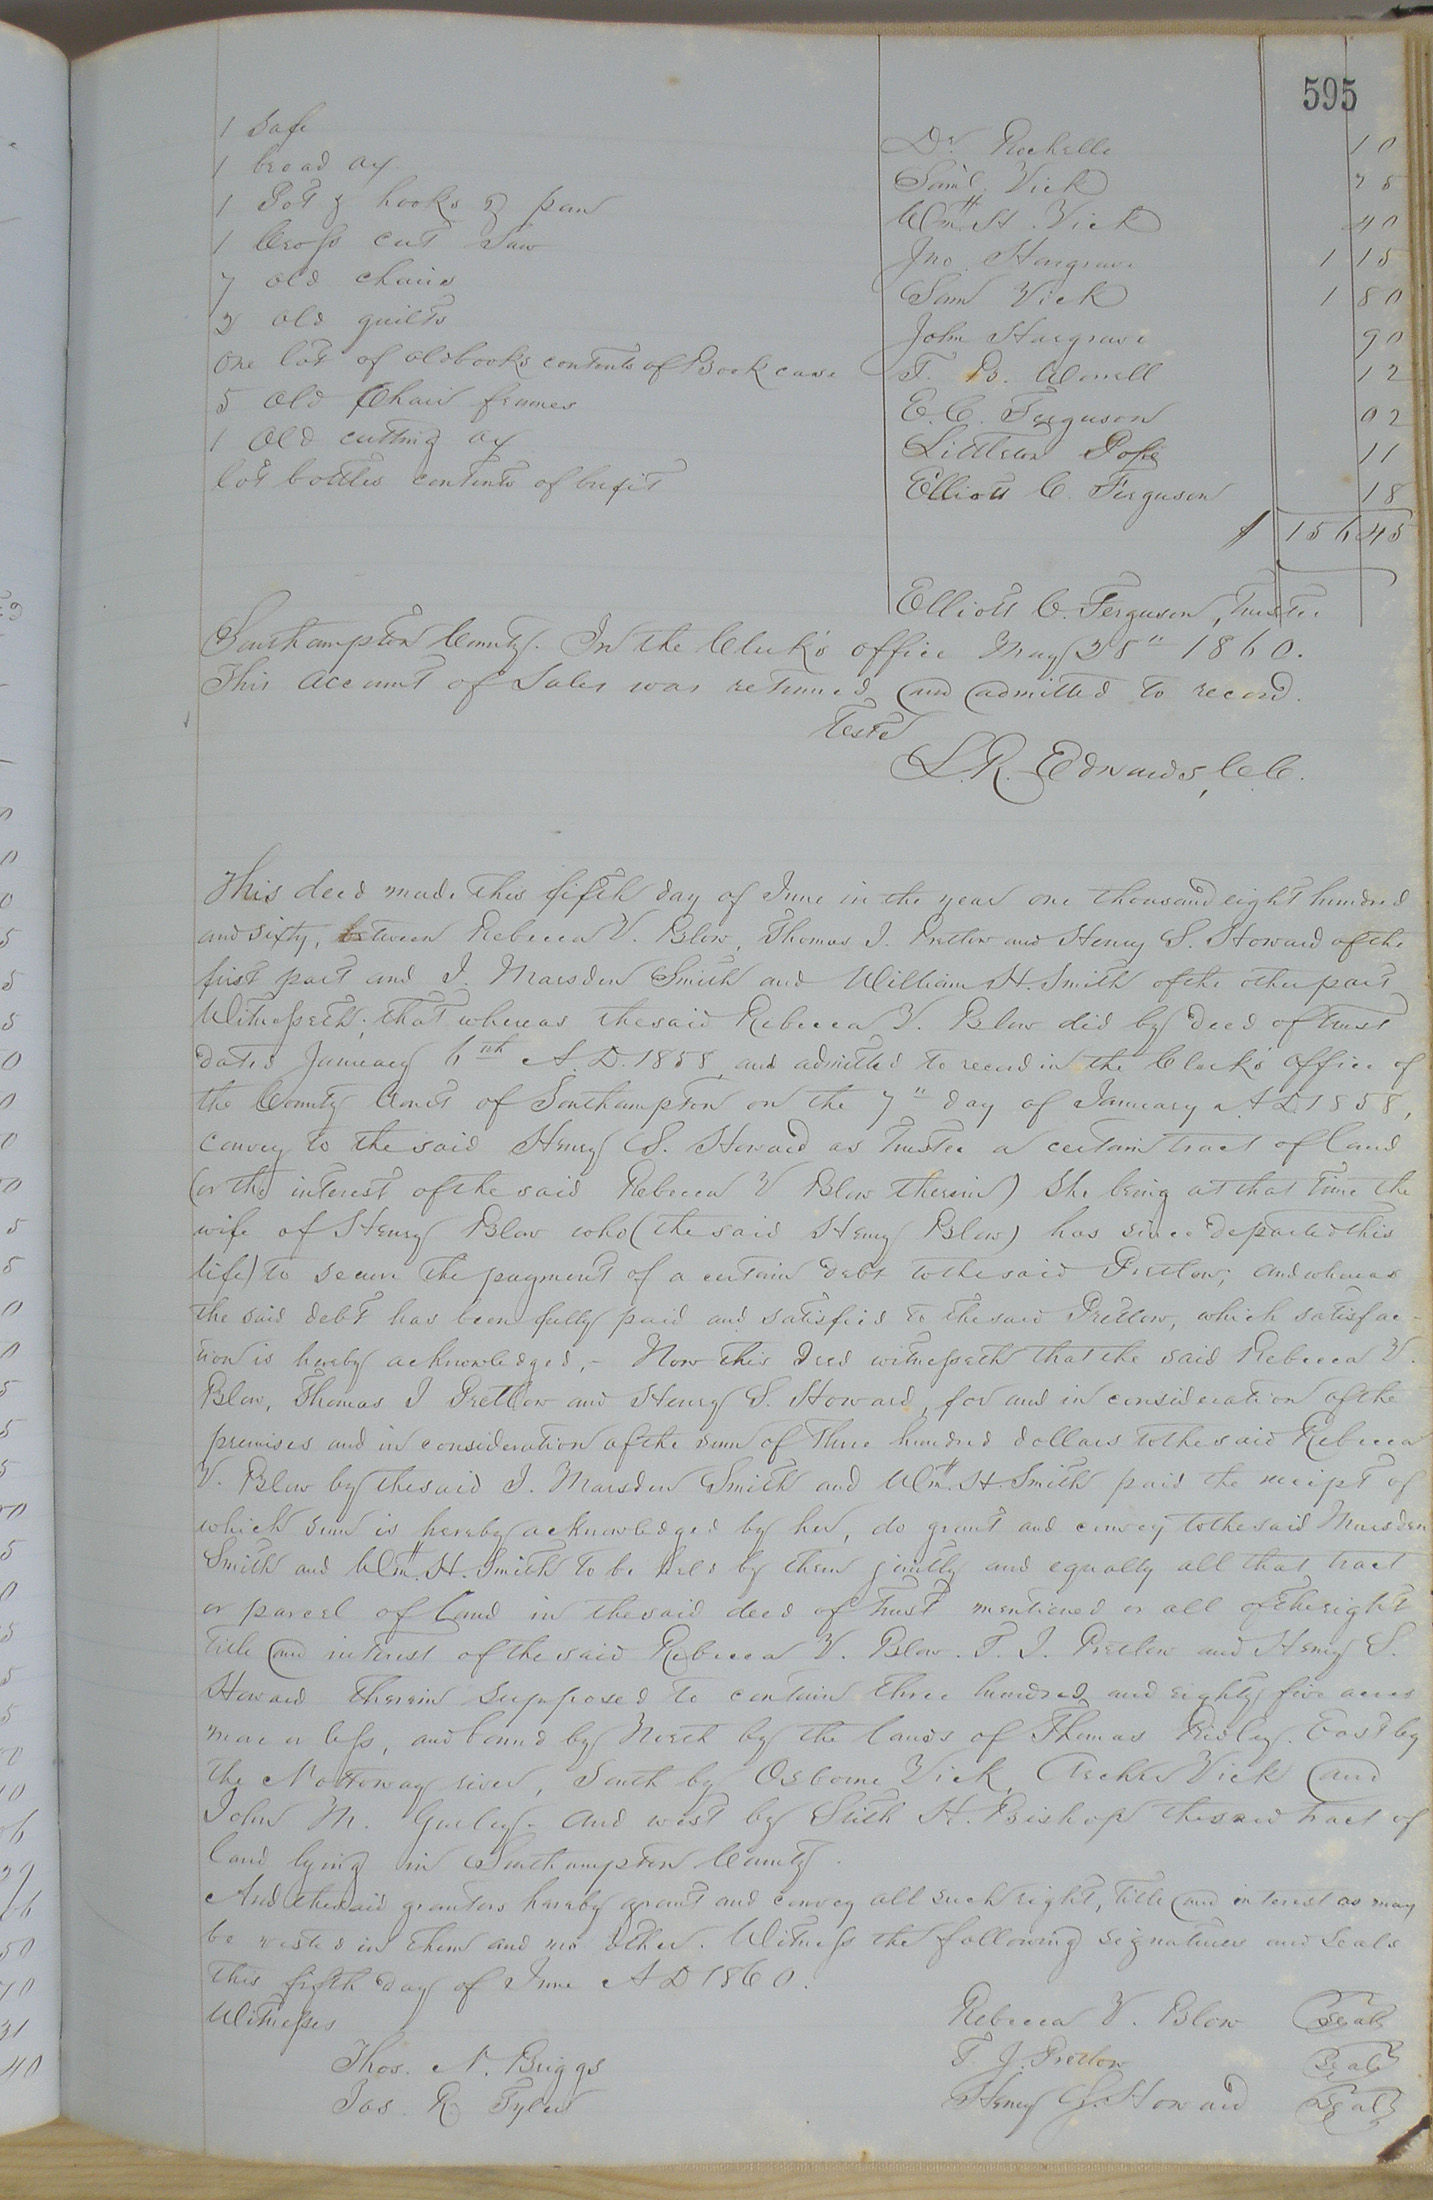 595
1 Safe Dr. Rochelle 10
1 broad ax Saml. Vick 25
1 Pot & hooks & pan Wm. H. Vick 40
1 Cross cut Saw Jno. Hargrave 1 15
7 old chairs Sam Vick 1 80
2 old quilts John Hargrave 90
One lot of old books contents of Book case T. B. Worrell 12
5 old Chair frames E. C. Ferguson 02
1 Old cutting ax Littleton Pope 11
lot bottles contents of bufit Elliott C. Ferguson 18
$ 156 45
Elliott C. Ferguson, Trustee
Southampton County. In the Clerk's office May 25" 1860.
This Account of Sales was returned and admitted to record.
Teste
L. R. Edwards, C.C.
This deed made this fifth day of June in the year one thousand eight hundred
and sixty, between Rebecca V. Blow, Thomas J. Pretlow and Henry S. Howard of the
first part and J. Marsden Smith and William H. Smith of the other part
Witnesseth; that whereas the said Rebecca V. Blow did by deed of trust
dated January 6th A.D. 1858, and admitted to record in the Clerk's office of
the County Court of Southampton on the 7" day of January A D 1858,
convey to the said Henry S. Howard as Trustee a certain tract of land
(or the interest of the said Rebecca V Blow therein) She being at that time the
wife of Henry Blow who (the said Henry Blow) has since departed this
life) to secure the payment of a certain debt to the said Pretlow; and whereas
the said debt has been fully paid and satisfied to the said Pretlow, which satisfac-
tion is hereby acknowledged,- Now this Deed witnesseth that the said Rebecca V.
Blow, Thomas J Pretlow and Henry S. Howard, for and in consideration of the
premises and in consideration of the sum of Three hundred dollars to the said Rebecca
V. Blow by the said J. Marsden Smith and Wm. H. Smith paid the receipt of
which sum is hereby acknowledged by her, do grant and convey to the said Marsden
Smith and Wm. H. Smith to be held by them jointly and equally all that tract
or parcel of Land in the said deed of Trust mentioned or all of the right
title and interest of the said Rebecca V. Blow. T. J. Pretlow and Henry S.
Howard therein supposed to contain three hundred and eighty five acres
more or less, and bound by North by the lands of Thomas Risley. East by
the Nottoway river, South by Osborne Vick, Archer Vick and
John M. Gurley- and west by Stith H. Bishop the said tract of
land lying in Southampton County.
And the said grantors hereby grant and convey all such right, title and interest as may
be vested in them and no other. Witness the following signatures and Seals
this fifth day of June A D 1860.
Witnesses Rebecca V. Blow Seal
Thos. N. Briggs T. J. Pretlow Seal
Jas. R. Tyler Henry S. Howard Seal